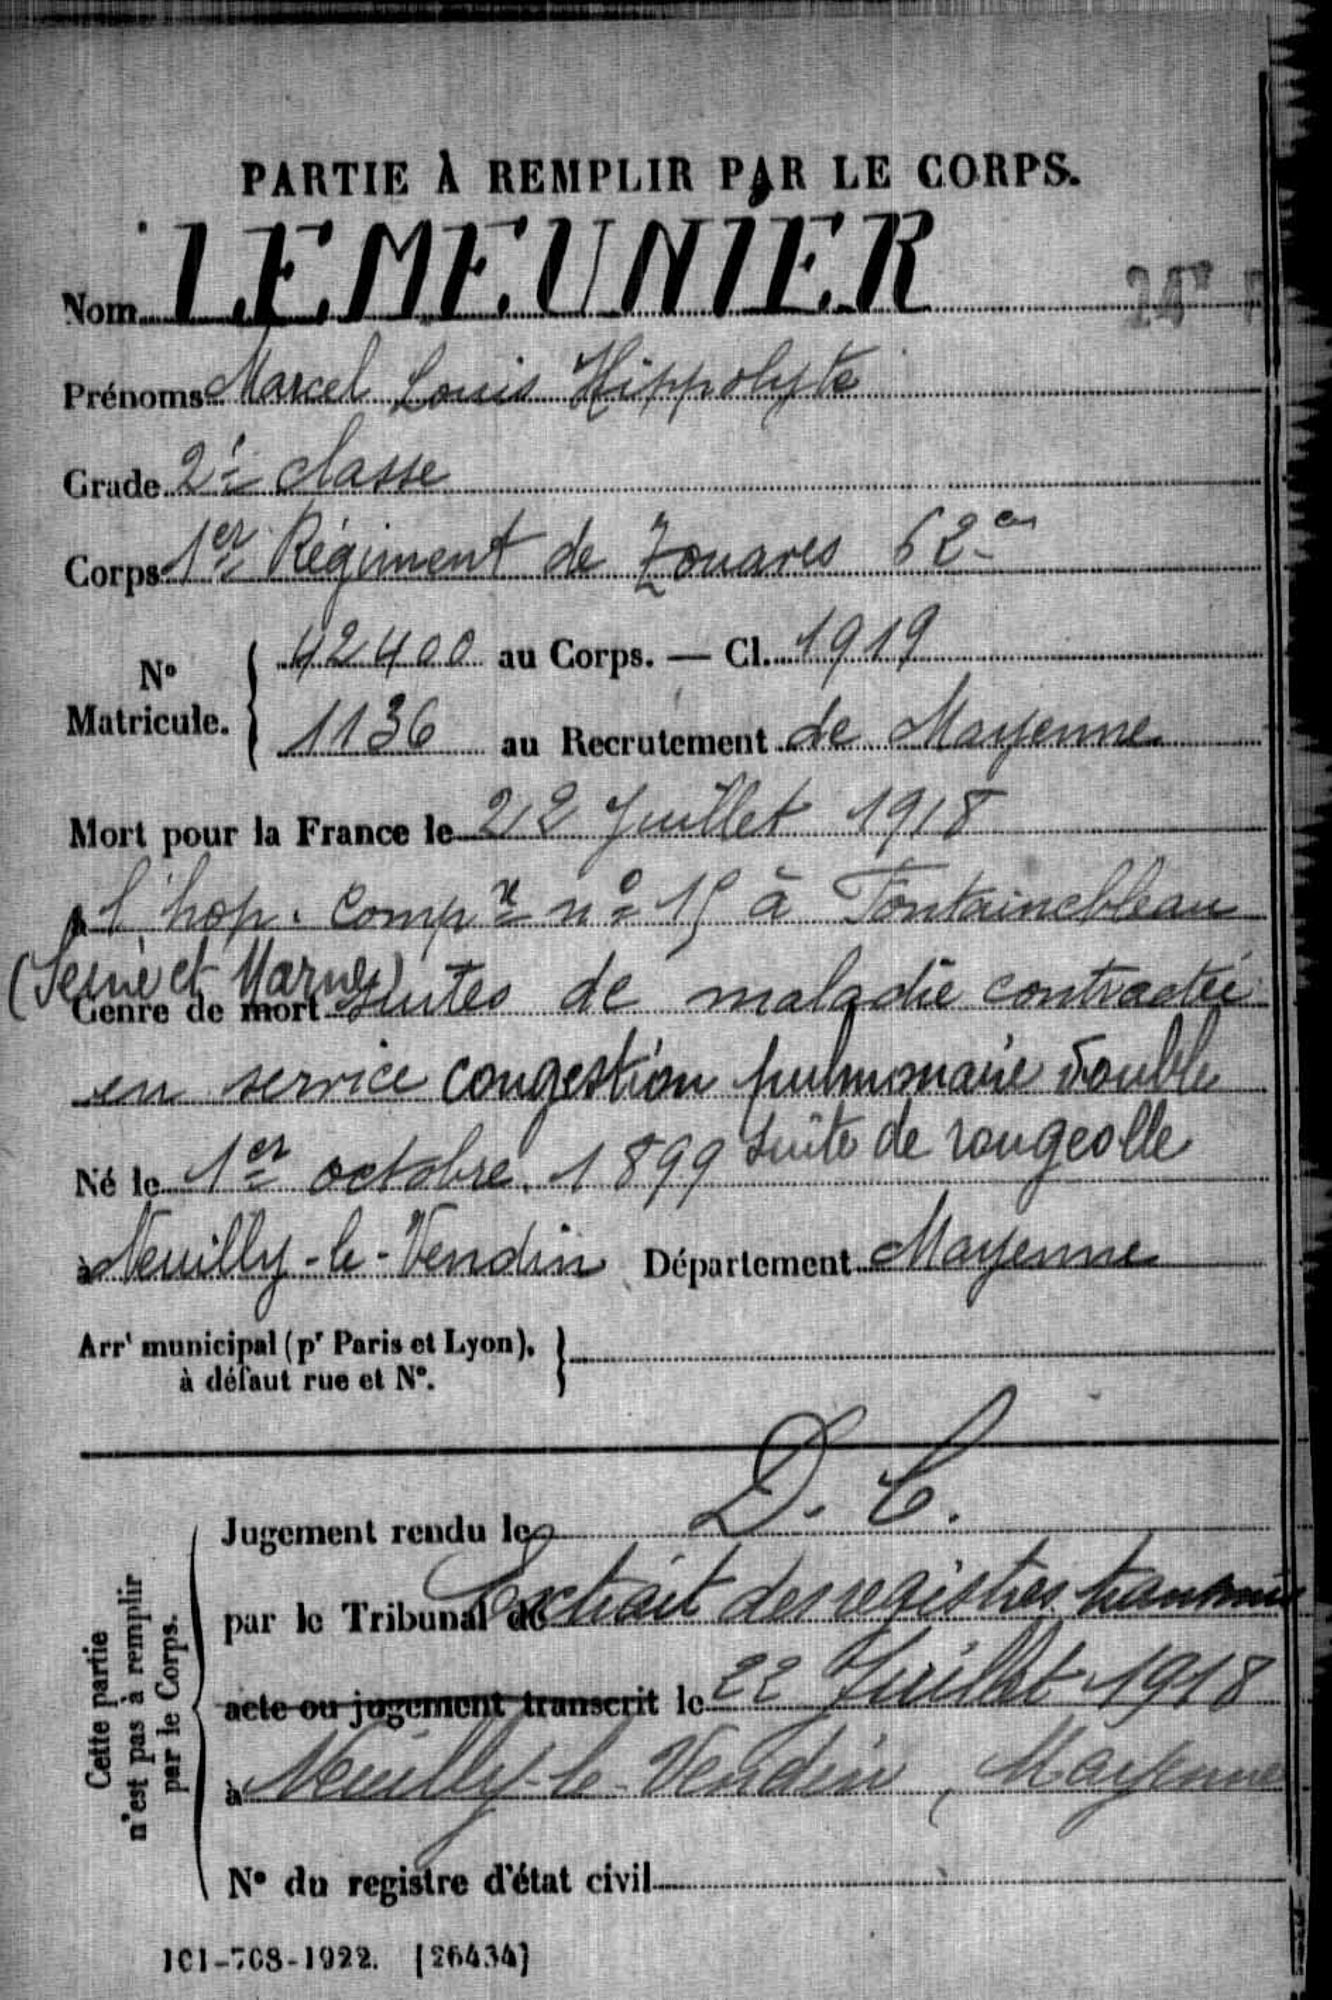 PARTIE À REMPLIR PAR LE CORPS.
Nom LEMEUNIER
Prénoms Marcel Louis Hippolyte
Grade 2è classe
Corps 1er Régiment de Zouaves 62e Cie
42400 au Corps. — Cl. 1919
N° Matricule.
1136 au Recrutement de Mayenne
Mort pour la France le 22 Juillet 1918
à l'hop. Compre n° 15 à Fontainebleau
(Seine et Marne)
Genre de mort suites de maladie contractée
en service congestion pulmonaire double
suite de rougeolle
Né le 1er octobre 1899
à Neuilly-le-Vendin Département Mayenne
Arrt municipal (pr Paris et Lyon),
à défaut rue et N°.
D. C.
Jugement rendu le
par le Tribunal de Extrait des registres transmis
acte ou jugement transcrit le 22 Juillet 1918
à Neuilly-le-Vendin, Mayenne
N° du registre d'état civil
Cette partie
n'est pas à remplir
par le Corps.
101-708-1922. [26434]